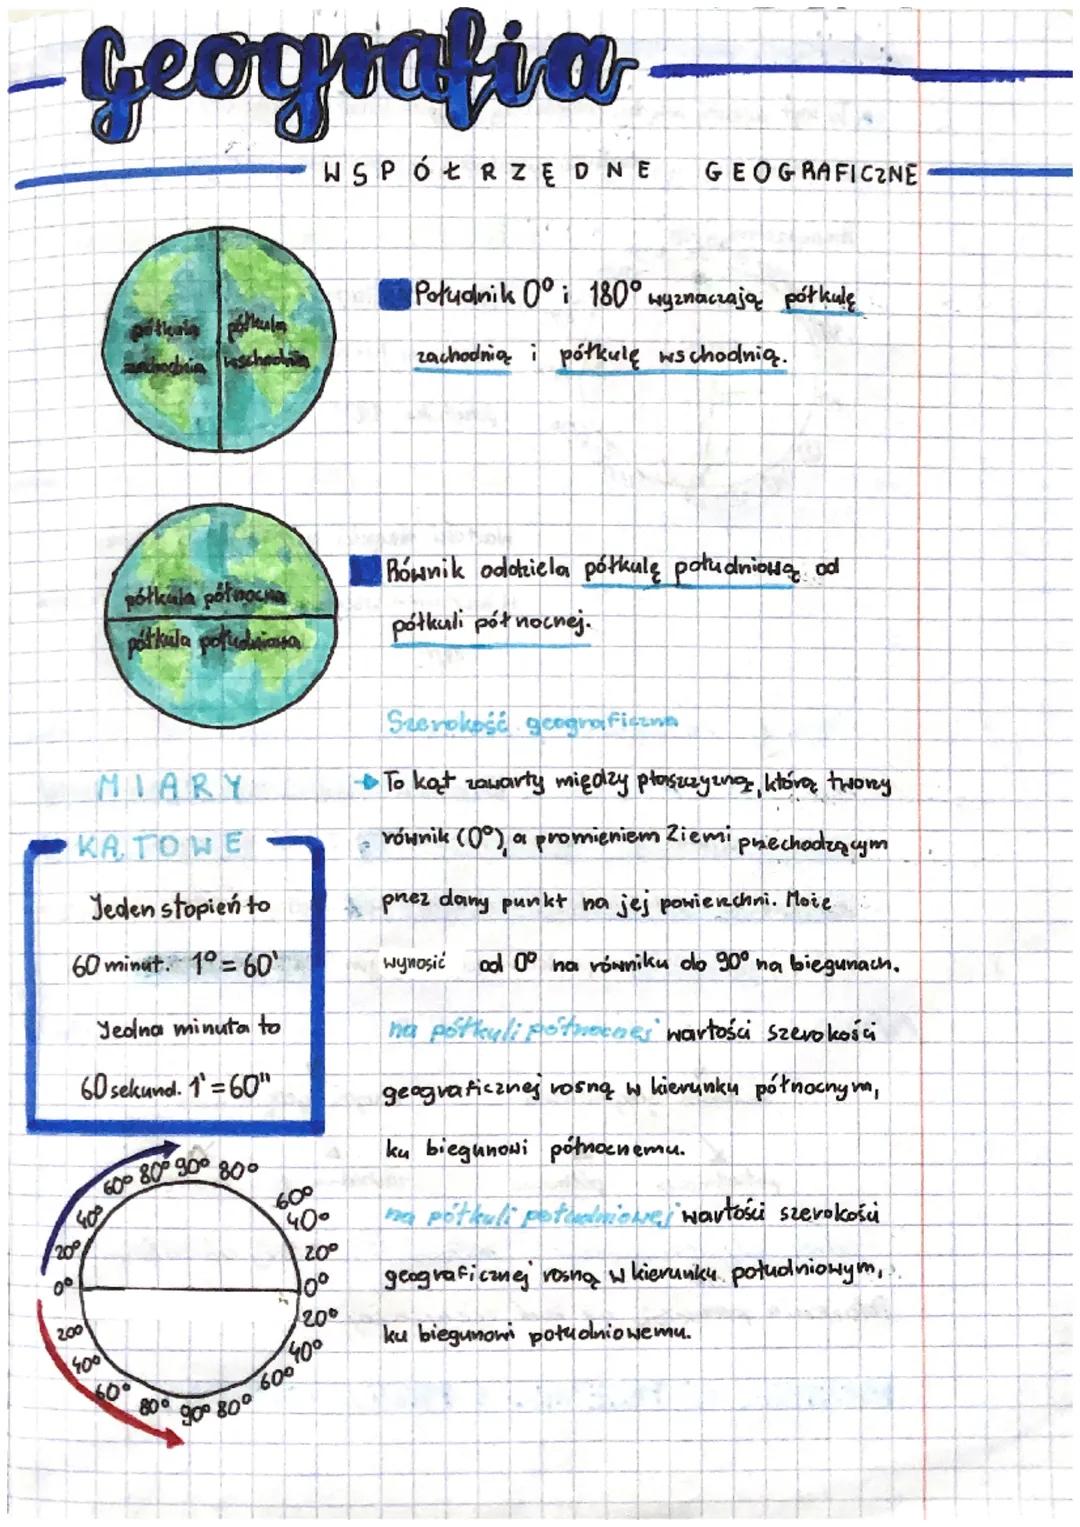 Geografia
WSPÓŁRZĘDNE GEOGRAFICZNE
półkula półkula
zachodnia wschodnia
Południk 0° i 180° wyznaczają półkulę
zachodnią i półkulę wschodnią.
półkula północna
półkula południowa
Równik oddziela półkulę południową od
półkuli północnej.
Szerokość geograficzna
To kąt zawarty między płaszczyzną, którą tworzy
równik (0°), a promieniem Ziemi przechodzącym
przez dany punkt na jej powierzchni. Może
wynosić od 0° na równiku do 90° na biegunach.
na półkuli północnej wartości szerokości
geograficznej rosną w kierunku północnym,
ku biegunowi północnemu.
na półkuli południowej wartości szerokości
geograficznej rosną w kierunku południowym,
ku biegunowi południowemu.
MIARY
KĄTOWE
Jeden stopień to
60 minut. 1° = 60'
Jedna minuta to
60 sekund. 1' = 60"
60° 80° 90° 80°
40° 60°
40°
20° 20°
0° 0°
20° 20°
40° 40°
60° 60°
80° 90° 80°